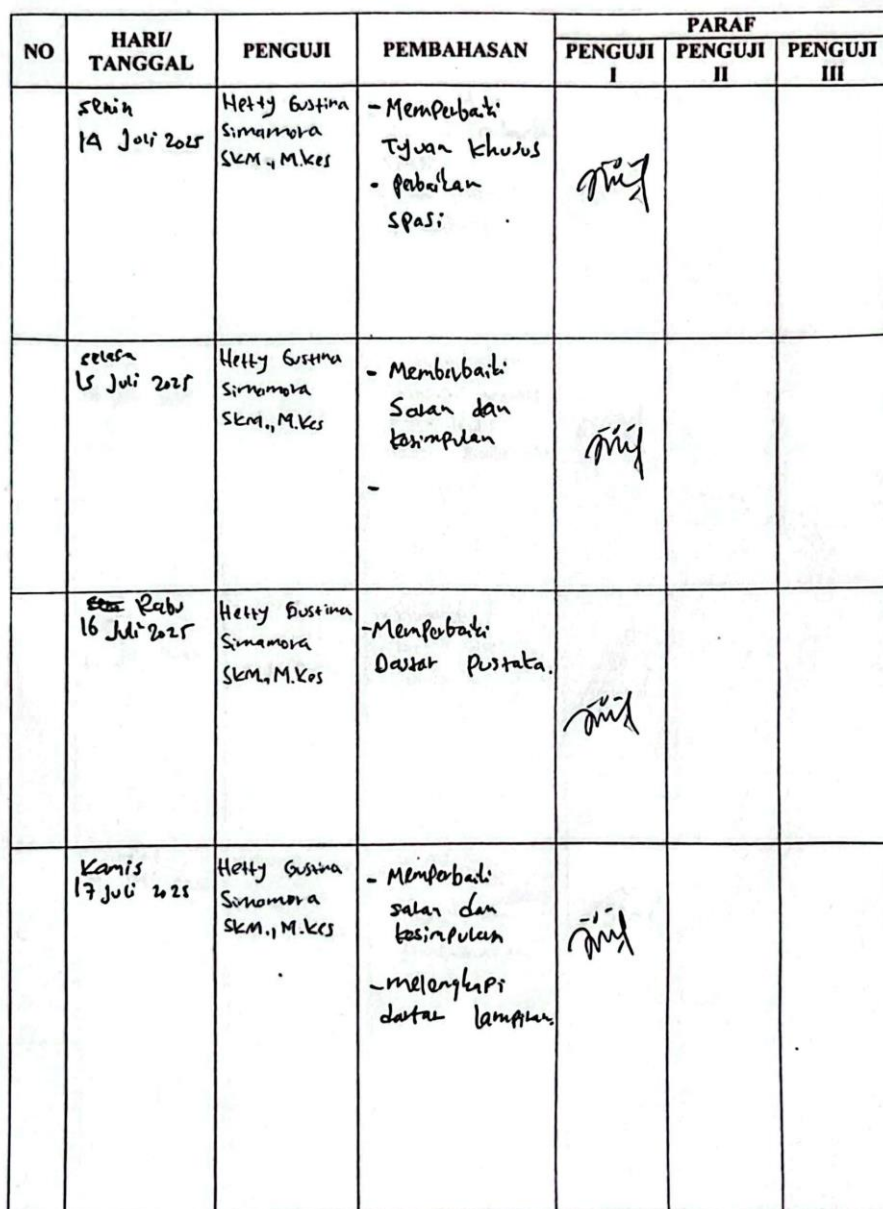 NO
HARI/
TANGGAL
PENGUJI
PEMBAHASAN
PARAF
PENGUJI
I
PENGUJI
II
PENGUJI
III
Senin
14 Juli 2025
Hetty Gustina
Simamora
SKM., M.Kes
- Memperbaiki
Tujuan Khusus
- perbaikan
spasi
selasa
15 Juli 2025
Hetty Gustina
Simamora
SKM., M.Kes
- Memberbaiki
Saran dan
kesimpulan
-
Rabu
16 Juli 2025
Hetty Gustina
Simamora
SKM., M.Kes
- Memperbaiki
Daftar Pustaka.
Kamis
17 Juli 2025
Hetty Gustina
Simamora
SKM., M.Kes
- Memperbaiki
saran dan
kesimpulan
- melengkapi
daftar lampiran.